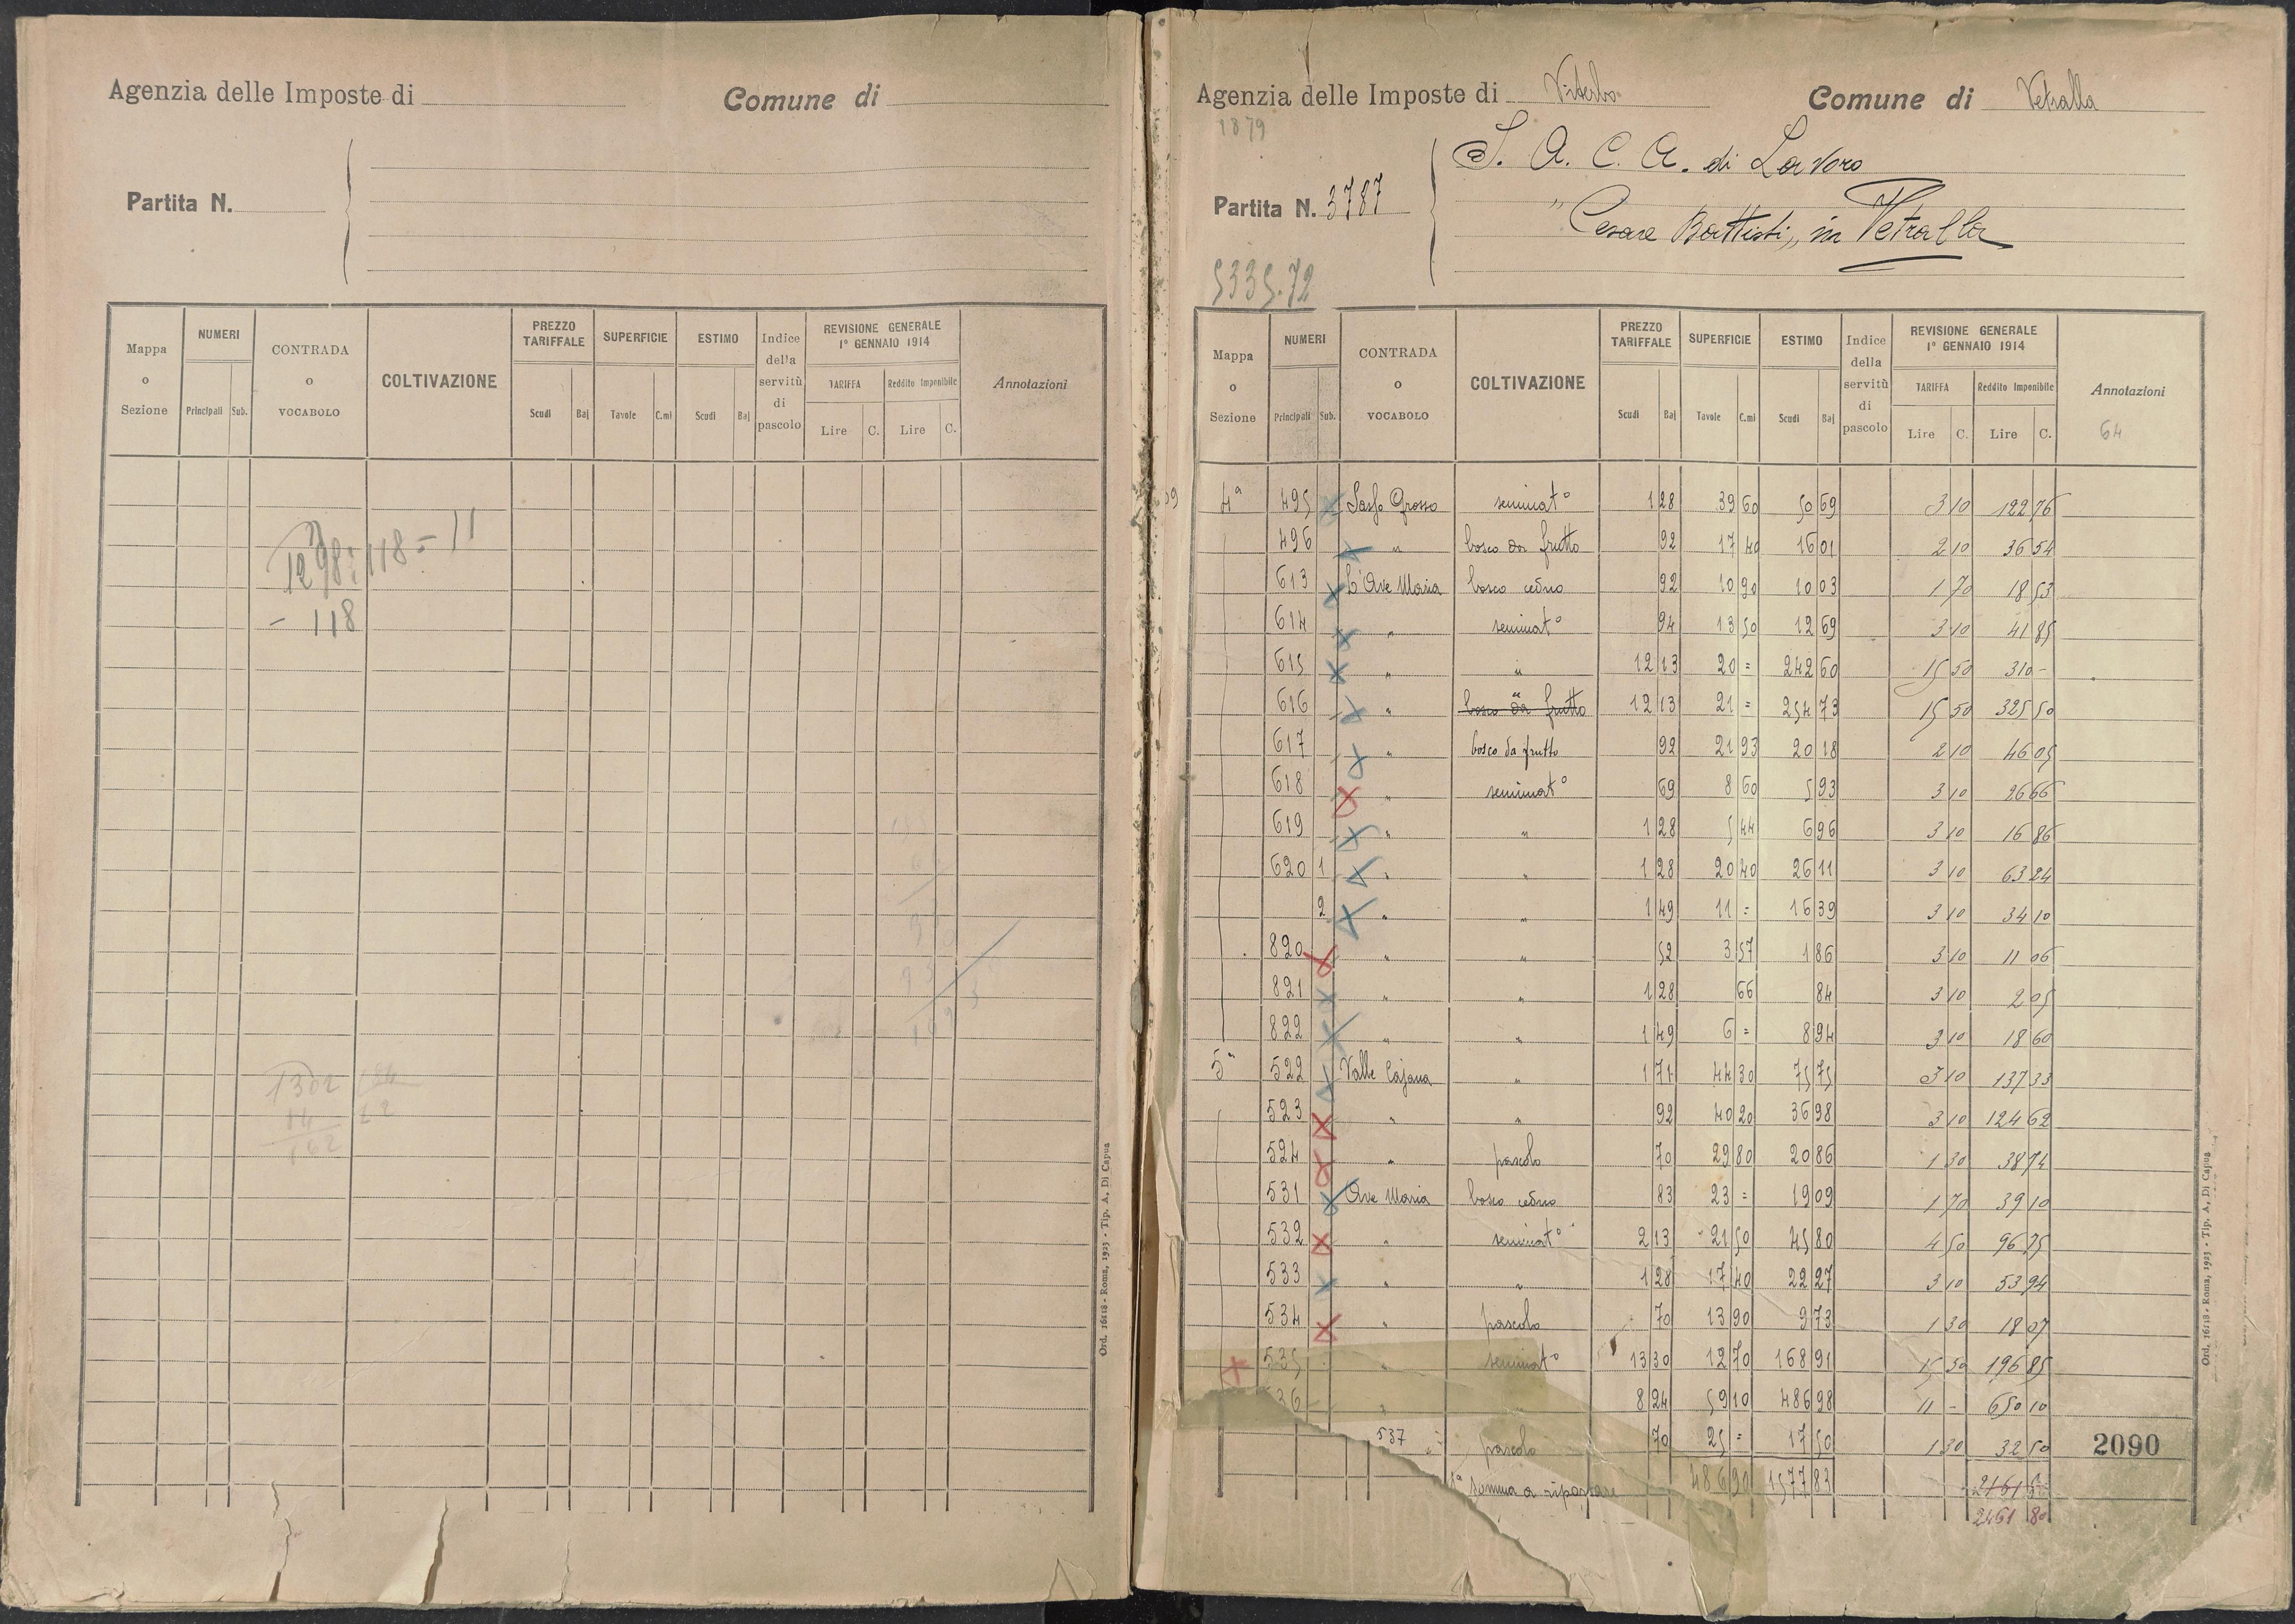 Agenzia delle Imposte di
Comune di
Partita N.
Mappa o Sezione
NUMERI
Principali Sub.
CONTRADA o VOCABOLO
COLTIVAZIONE
PREZZO TARIFFALE
Scudi Baj
SUPERFICIE
Tavole C.mi
ESTIMO
Scudi Baj
Indice della servitù di pascolo
REVISIONE GENERALE
1° GENNAIO 1914
TARIFFA Reddito Imponibile
Lire C. Lire C.
Annotazioni
1298:118=11
- 118
1302
162
Ord. 16118 - Roma, 1923 - Tip. A. Di Capua
Agenzia delle Imposte di Viterbo
Comune di Vetralla
1879
S. A. C. A. di Lavoro
Partita N. 3787
"Cesare Battisti" in Vetralla
5335.72
Mappa o Sezione
NUMERI
Principali Sub.
CONTRADA o VOCABOLO
COLTIVAZIONE
PREZZO TARIFFALE
Scudi Baj
SUPERFICIE
Tavole C.mi
ESTIMO
Scudi Baj
Indice della servitù di pascolo
REVISIONE GENERALE
1° GENNAIO 1914
TARIFFA Reddito Imponibile
Lire C. Lire C.
Annotazioni
64
4ª 495 Sasso Grosso seminat° 1 28 39 60 50 69 3 10 122 76
496 " bosco da frutto 92 17 40 16 01 2 10 36 54
613 L'Ave Maria bosco ceduo 92 10 90 10 03 1 70 18 53
614 " seminat° 94 13 50 12 69 3 10 41 85
615 " " 12 13 20 = 242 60 15 50 310 -
616 " bosco da frutto " 12 13 21 = 254 73 15 50 325 50
617 " bosco da frutto 92 21 93 20 18 2 10 46 05
618 " seminat° 69 8 60 5 93 3 10 26 66
619 " " 1 28 5 44 6 96 3 10 16 86
620 1 " " 1 28 20 40 26 11 3 10 63 24
2 " " 1 49 11 = 16 39 3 10 34 10
820 " " 52 3 57 1 86 3 10 11 06
821 " " 1 28 66 84 3 10 2 05
822 " " 1 49 6 = 8 94 3 10 18 60
5ª 522 Valle Cajana " 1 71 44 30 75 75 3 10 137 33
523 " " 92 40 20 36 98 3 10 124 62
524 " pascolo 70 29 80 20 86 1 30 38 74
531 Ave Maria bosco ceduo 83 23 = 19 09 1 70 39 10
532 " seminat° 2 13 21 50 45 80 4 50 96 75
533 " " 1 28 17 40 22 27 3 10 53 94
534 " pascolo 70 13 90 9 73 1 30 18 07
535 " seminat° 13 30 12 70 168 91 15 50 196 85
36 " 8 24 59 10 486 98 11 - 650 10
537 " pascolo 70 25 = 17 50 1 30 32 50
2090
1ª somma a riportare 486 90 1577 83 2461
2461 80
Ord. 16118 - Roma, 1923 - Tip. A. Di Capua